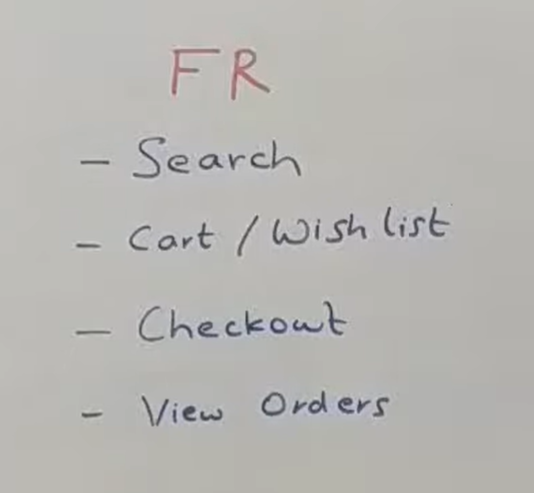 FR
- Search
- Cart / Wish list
- Checkout
- View Orders